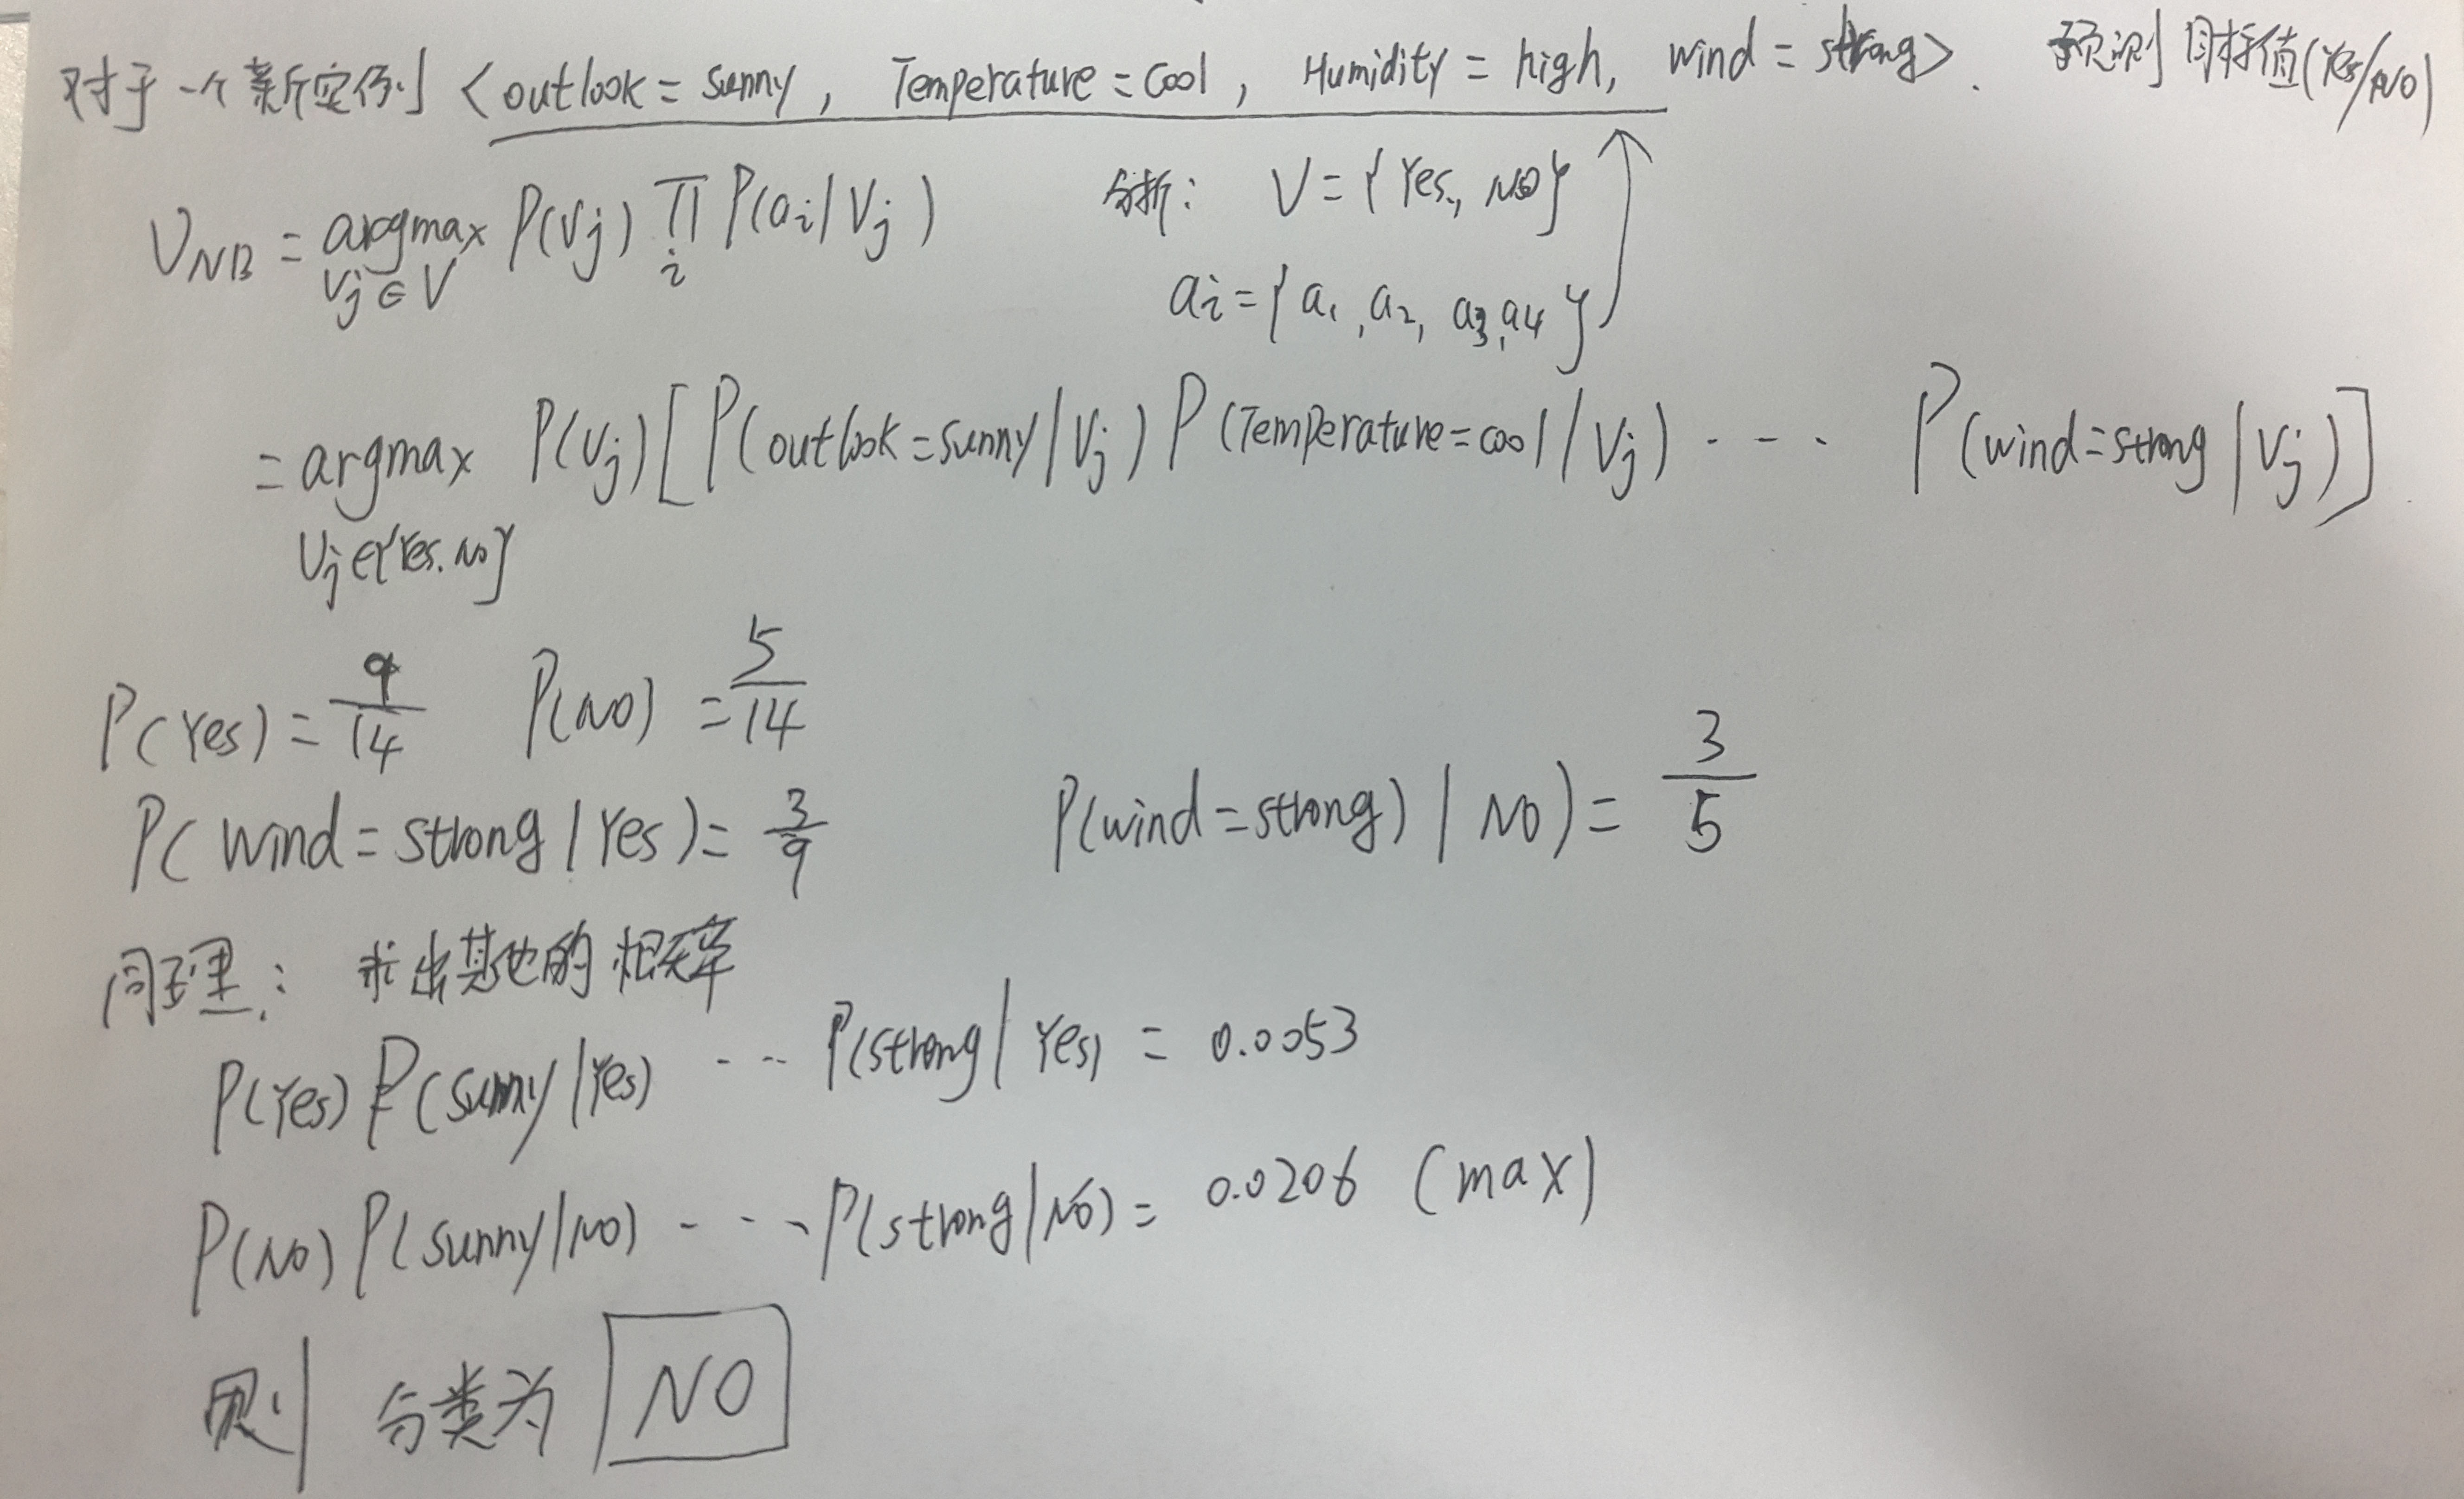 对于一个新实例 <outlook = sunny, Temperature = Cool, Humidity = high, wind = strong>. 预测目标值(Yes/NO)
V_NB = argmax P(Vj) ∏ P(ai|Vj) 分析: V = {Yes, NO}
Vj ∈ V i
ai = {a1, a2, a3, a4}
= argmax P(Vj)[P(outlook=sunny|Vj) P(Temperature=cool|Vj) ---- P(wind=strong|Vj)]
Vj∈{Yes.No}
P(Yes) = 9/14 P(NO) = 5/14
P(wind=strong|Yes) = 3/9 P(wind=strong)|NO) = 3/5
同理: 求出其他的概率
P(Yes)P(sunny|Yes) --- P(strong|Yes) = 0.0053
P(No)P(sunny|No) ---- P(strong|No) = 0.0206 (max)
则 分类为 NO